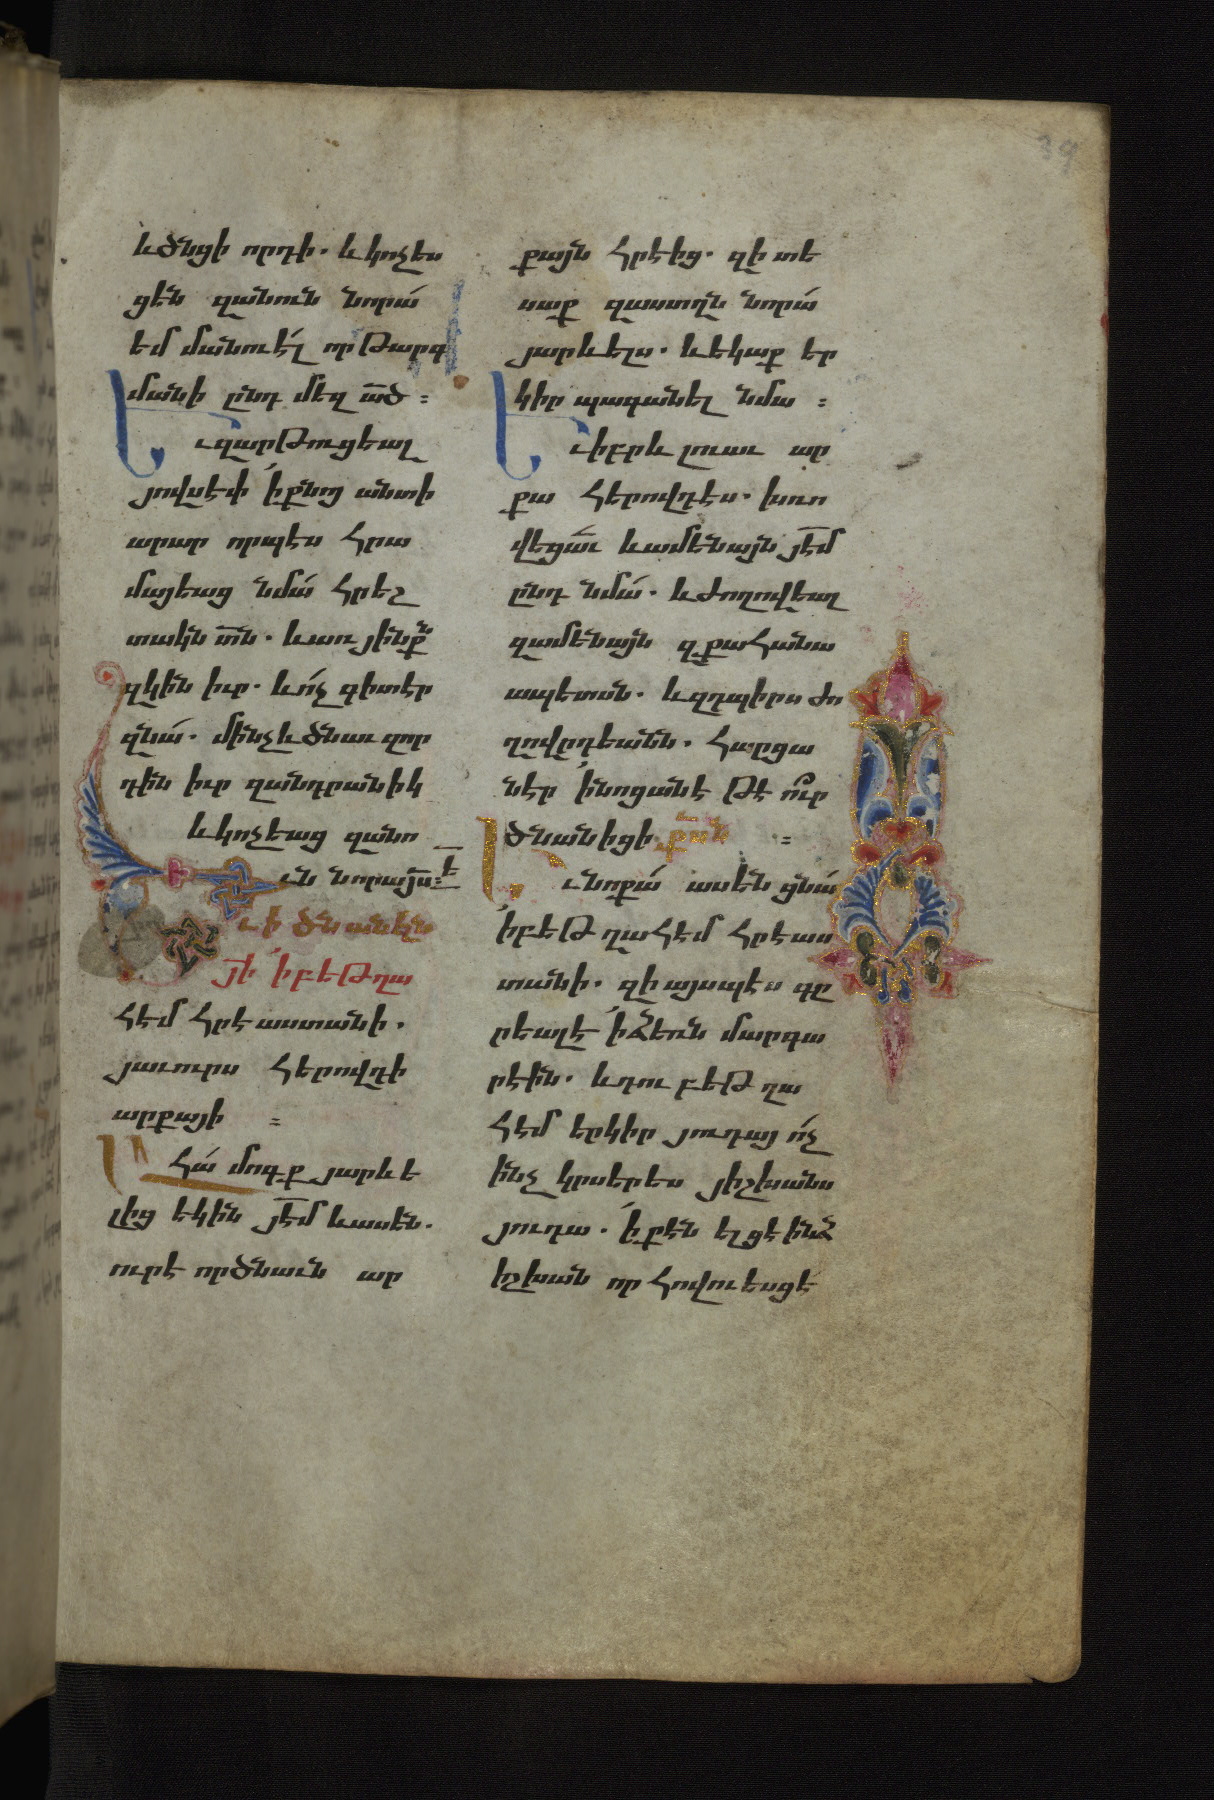 39
և ծնցի որդի. և կոչես
ցեն զանուն նորա՛
եմմանուէ՛լ որ թարգ
մանի ընդ մեզ ա՟ծ :
Եւ զարթուցեալ
յովսէփ ՛ի քնոյ անտի
արար որպէս հրա
մայեաց նմա՛ հրեշ
տակն տ՟ն. և առ յինքն
զկին իւր. և ո՛չ գիտէր
զնա՛. մինչև ծնաւ զոր
դին իւր զանդրանիկ
և կոչեաց զանո
ւն նորա յ՟ս : Ե
Եւ ի ծնանելն
յ՟ի ՛ի բեթղա
հէմ հրէաստանի.
յաւուրս հերովդի
արքայի :
Ահա՛ մոգք յարևե
լից եկին յ՟եմ և ասեն.
ուր է որ ծնաւն ար
քայն հրէից. զի տե
սաք զաստղն նորա՛
յարևելս. և եկաք եր
կիր պագանել նմա :
Եւ իբրև լուաւ ար
քա հերովդէս. խռո
վեցա՛ւ և ամենայն յ՟եմ
ընդ նմա՛. և ժողովեալ
զամենայն զքահանա
ապետսն. և զդպիրս ժո
ղովրդեանն. հարցա
նէր ՛ի նոցանէ թէ ո՞ւր
ծնանիցի ք՟սն :
Եւ նոքա՛ ասեն ցնա՛
՛ի բեթղահէմ հրէաս
տանի. զի այսպէս գը
րեալ է ՛ի ձեռն մարգա
րէին. և դու բեթղա
հէմ երկիր յուդայ ո՛չ
ինչ կրսերես յիշխանս
յուդա. ՛ի քէն ելցէ ինձ
իշխան որ հովուեսցէ